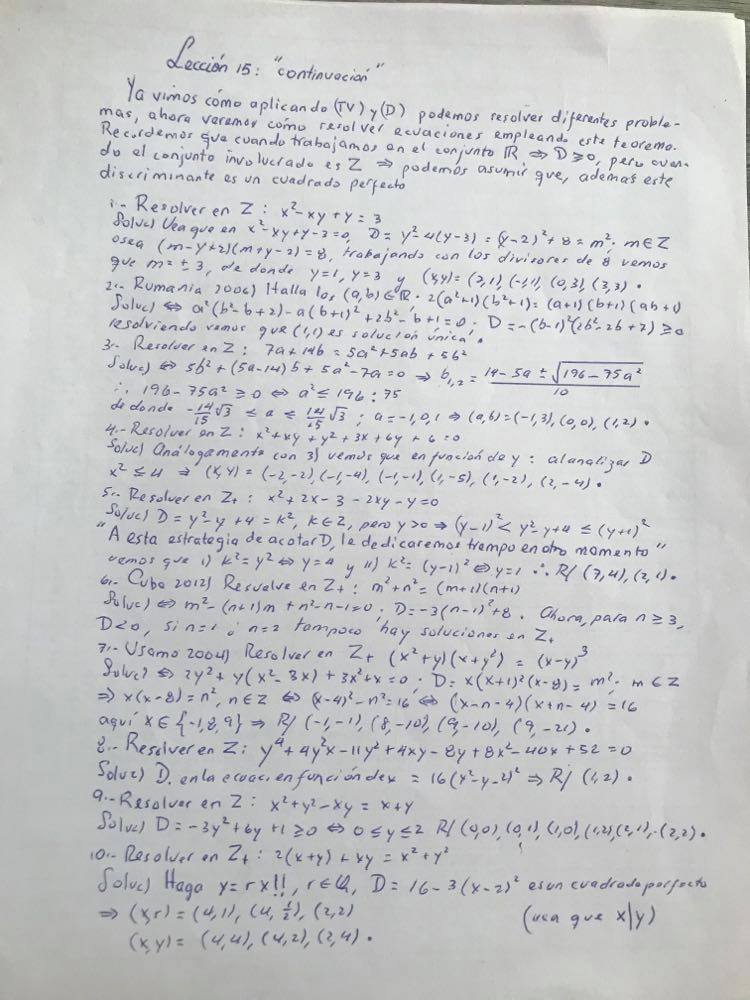 Lección 15: "continuación"
Ya vimos cómo aplicando (TV) y (D) podemos resolver diferentes proble-
mas, ahora varemos cómo resolver ecuaciones empleando este teorema.
Recordemos que cuando trabajamos en el conjunto ℝ ⇒ D≥0, pero cuan-
do el conjunto involucrado es Z ⇒ podemos asumir que, además este
discriminante es un cuadrado perfecto
1.- Resolver en Z: x²-xy+y=3
Soluc) Vea que en x²-xy+y-3=0, D=y²-4(y-3)=(y-2)²+8=m²; m∈Z
osea (m-y+2)(m+y-2)=8, trabajando con los divisores de 8 vemos
que m=±3, de donde y=1, y=3 y (x,y)=(2,1),(-1,1),(0,3),(3,3).
2.- Rumania 2006) Halla los (a,b)∈ℝ. 2(a²+1)(b²+1)=(a+1)(b+1)(ab+1)
Soluc) ⇔ a²(b²-b+2)-a(b+1)²+2b²-b+1=0; D=-(b-1)²(7b²-2b+7)≥0
resolviendo vemos que (1,1) es solución única.
3.- Resolver en Z: 7a+14b=5a²+5ab+5b²
Soluc) ⇔ 5b²+(5a-14)b+5a²-7a=0 ⇒ b₁,₂=(14-5a±√(196-75a²))/10
∴ 196-75a²≥0 ⇔ a²≤196:75
de donde -14/15√3 ≤ a ≤ 14/15√3; a=-1,0,1 ⇒ (a,b)=(-1,3),(0,0),(1,2).
4.- Resolver en Z: x²+xy+y²+3x+6y+6=0
Soluc) Análogamente con 3) vemos que en función de y: al analizar D
x²≤4 ⇒ (x,y)=(-2,-2),(-1,-4),(-1,-1),(1,-5),(1,-2),(2,-4).
5.- Resolver en Z₊: x²+2x-3-2xy-y=0
Soluc) D=y²-y+4=k², k∈Z, pero y>0 ⇒ (y-1)²<y²-y+4≤(y+1)²
"A esta estrategia de acotar D, le dedicaremos tiempo en otro momento"
vemos que i) k²=y² ⇔ y=4 y ii) k²=(y-1)² ⇔ y=1 ∴ R/ (7,4),(2,1).
6.- Cuba 2012) Resuelve en Z₊: m²+n²=(m+1)(n+1)
Soluc) ⇔ m²-(n+1)m+n²-n-1=0; D=-3(n-1)²+8. Ahora, para n≥3,
D<0, si n=1 ó n=2 tampoco hay soluciones en Z₊
7.- Usamo 2004) Resolver en Z₊ (x²+y)(x+y²)=(x-y)³
Soluc) ⇔ 2y²+y(x²-3x)+3x²+x=0; D=x(x+1)²(x-8)=m²; m∈Z
⇒ x(x-8)=n², n∈Z ⇔ (x-4)²-n²=16 ⇔ (x-n-4)(x+n-4)=16
aquí x∈{-1,8,9} ⇒ R/ (-1,-1),(8,-10),(9,-10),(9,-21).
8.- Resolver en Z: y⁴+4y²x-11y²+4xy-8y+8x²-40x+52=0
Soluc) D. en la ecuac. en función de x = 16(y²-y-2)² ⇒ R/ (1,2).
9.- Resolver en Z: x²+y²-xy=x+y
Soluc) D=-3y²+6y+1≥0 ⇔ 0≤y≤2 R/ (0,0),(0,1),(1,0),(1,2),(2,1),(2,2).
10.- Resolver en Z₊: 2(x+y)+xy=x²+y²
Soluc) Haga y=rx!!, r∈ℚ, D=16-3(x-2)² es un cuadrado perfecto
⇒ (x,r)=(4,1),(4,1/2),(2,2) (vea que x|y)
(x,y)=(4,4),(4,2),(2,4).